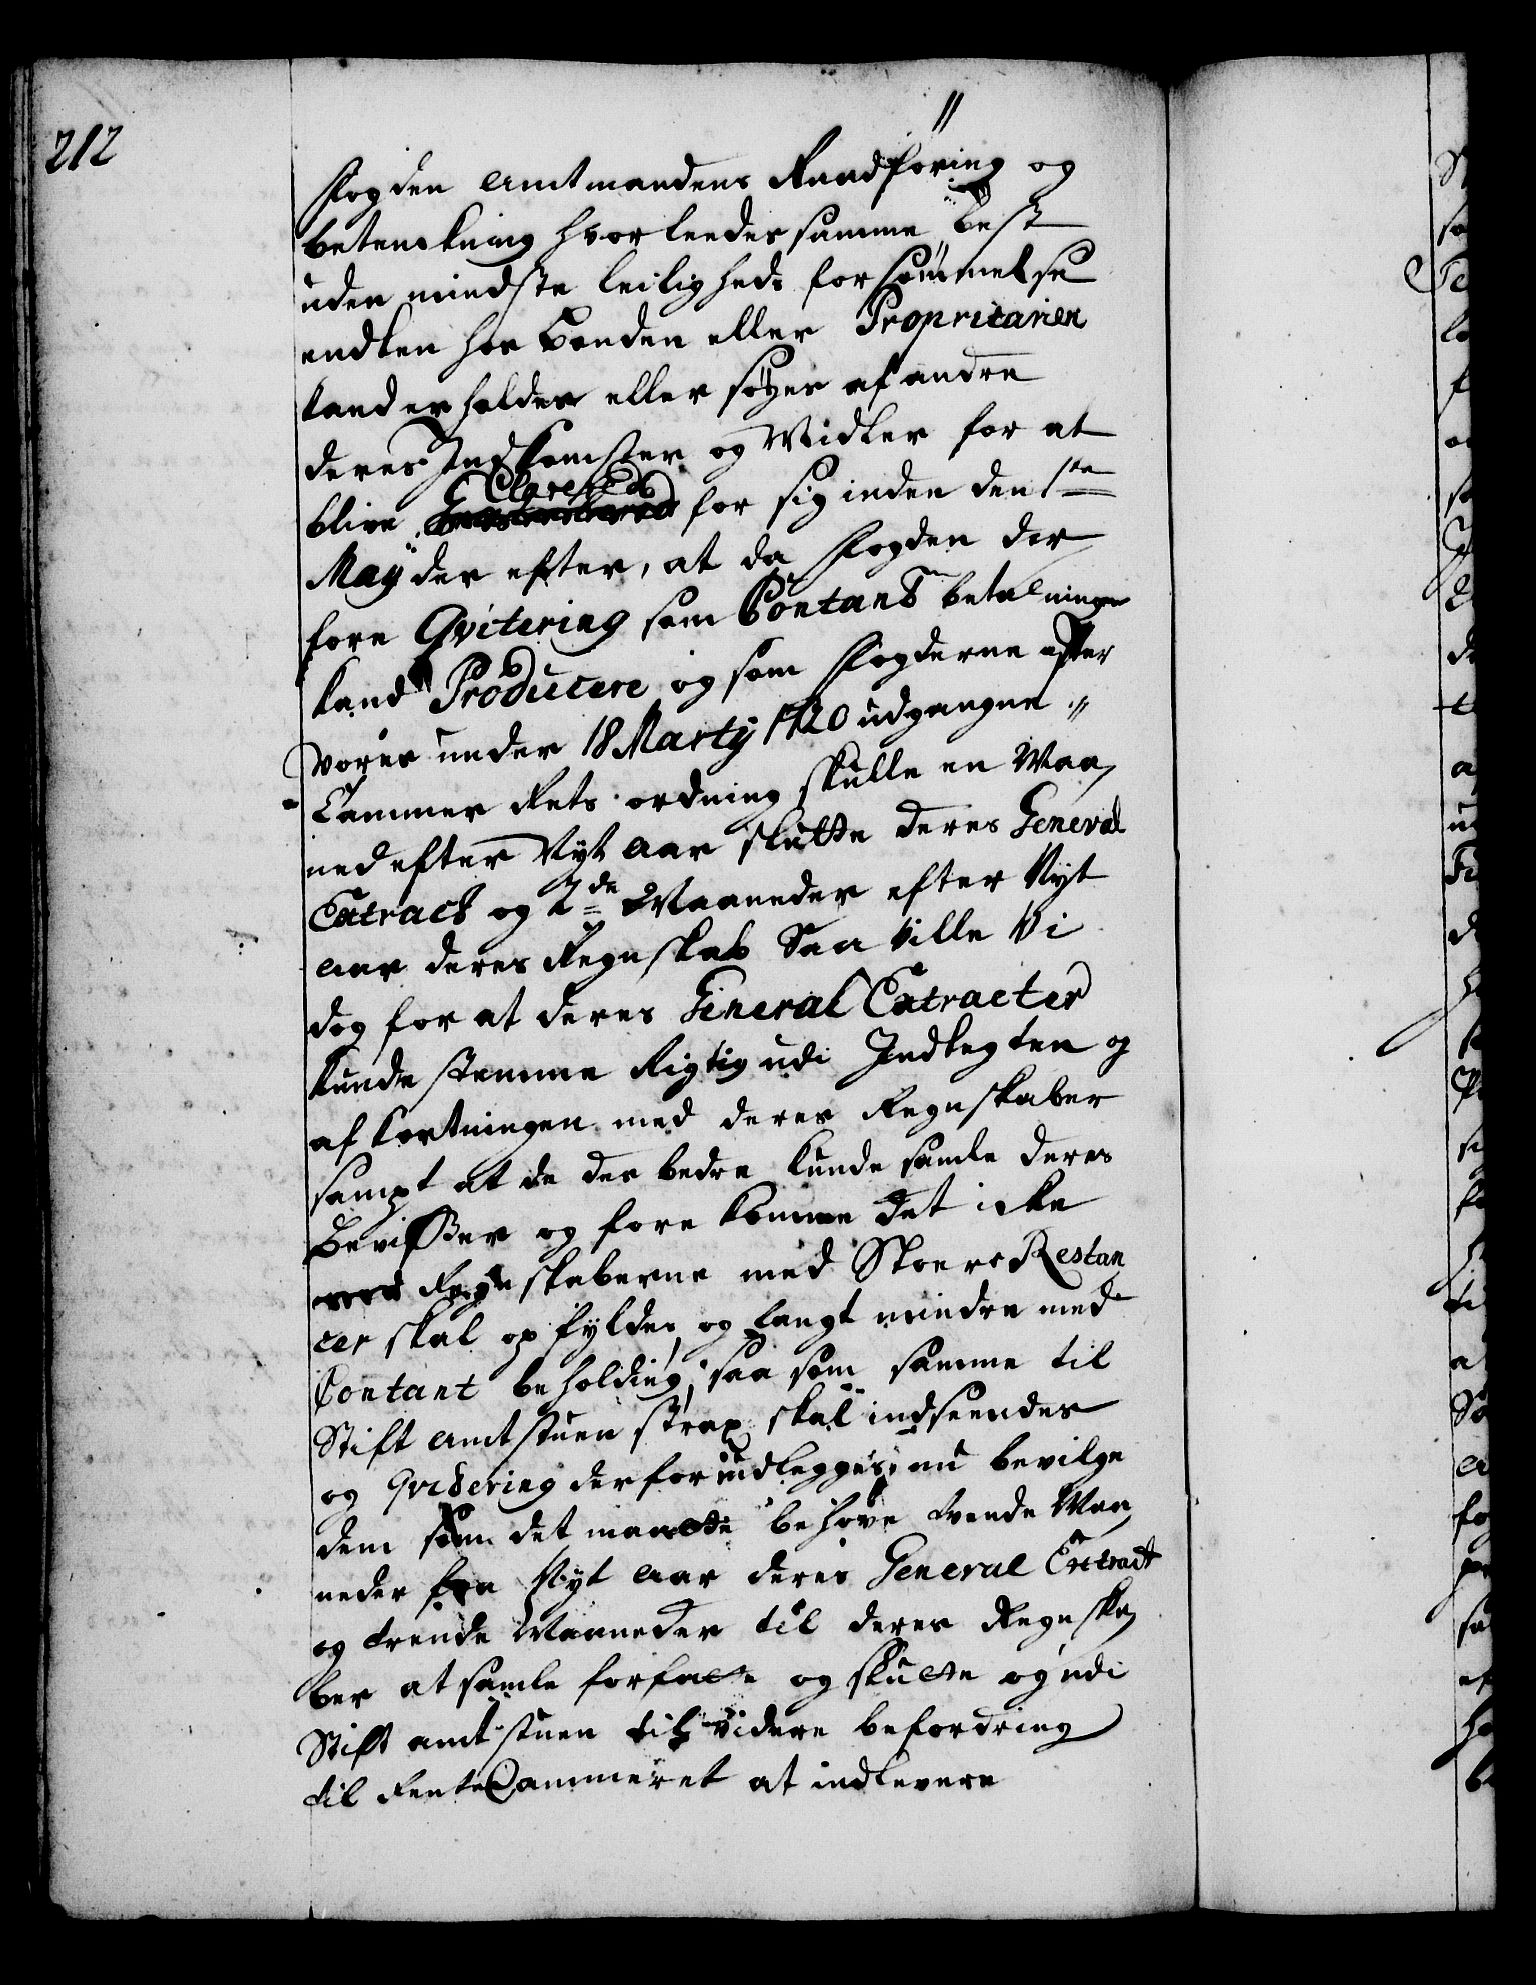 212
Fogden Amtmandens Raadføring og
betenckning hvorleedes samme best
uden mindste leiligheds forsømmelse
endten hos bonden eller Proprietarien
kand erholdes eller søges af andre
deres Indkomster og Midler for at
blive Clarered for sig inden den 1ste
Maÿ der efter, at da Fogden der
fore Qvitering som Contant betalninger
kand Producere og som Fogderne efter
vores under 18 Martÿ 1720 udgangne
Cammer Rets ordning skulle en Maa
ned efter Nyt Aar slutte deres General
Extract og 2de Maaneder efter Nyt
Aar deres Regnskab Saa ville Vi
dog for at deres General Extracter
kunde stemme Rigtig udi Indtegten og
afkortningen med deres Regnskaber
sampt at de des bedre kunde samle deres
Bevißer og fore komme det icke
Regnskaberne med Stoere Restan
cer skal opfyldes, og langt mindre med
Contant beholding, saa som samme til
Stift Amtstuen strax skal indsendes
og Qvitering derfor indlegges, nu bevilge
dem som det maatte behøve tvende Maa
neder fra Nyt Aar deres General Extract
og trende Maaneder til deres Regnska
ber at samle forfatte og slutte og udi
Stift amtstuen til videre befordring
til RenteCammeret at indlevere